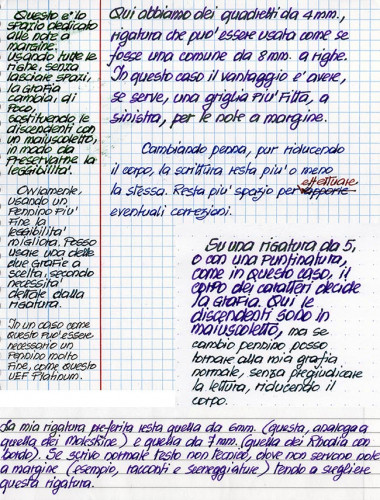 Questo e' lo
spazio dedicato
alle note a
margine.
Usando tutte le
righe, senza
lasciare spazi,
la grafia
cambia, di
poco,
sostituendo le
discendenti con
un maiuscoletto,
in modo da
preservarne la
leggibilita'.
Ovviamente,
usando un
pennino piu'
fine la
leggibilita'
migliora. Posso
usare una delle
due grafie a
scelta, secondo
necessita'
dettate dalla
rigatura.
In un caso come
questo puo' essere
necessario un
pennino molto
fine, come questo
UEF Platinum.
Qui abbiamo dei quadretti da 4mm.,
rigatura che puo' essere usata come se
fosse una comune da 8mm. a righe.
In questo caso il vantaggio e' avere,
se serve, una griglia piu' fitta, a
sinistra, per le note a margine.
Cambiando penna, pur riducendo
il corpo, la scrittura resta piu' o meno
la stessa. Resta piu' spazio per effettuare
eventuali correzioni.
Su una rigatura da 5,
o con una puntinatura,
come in questo caso, il
corpo dei caratteri decide
la grafia. Qui le
discendenti sono in
maiuscoletto, ma se
cambio pennino posso
tornare alla mia grafia
normale, senza pregiudicare
la lettura, riducendo il
corpo.
La mia rigatura preferita resta quella da 6mm. (questa, analoga a
quella dei Moleskine) e quella da 7mm. (quella dei Rhodia con
bordo). Se scrivo normale testo non tecnico, dove non servono note
a margine (esempio, racconti e sceneggiature) tendo a scegliere
questa rigatura.